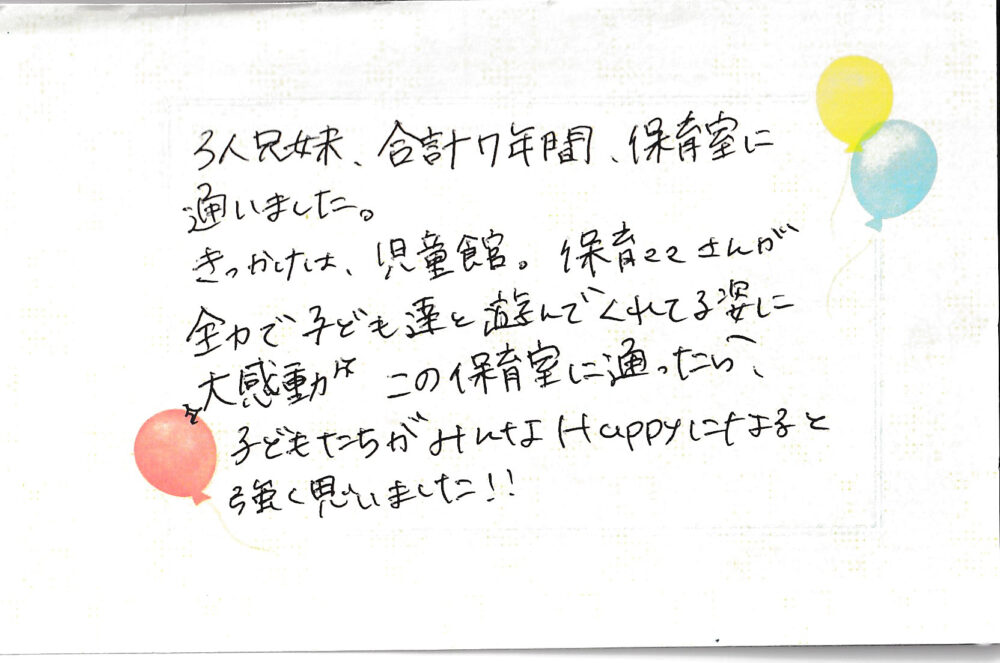 3人兄妹、合計7年間、保育室に
通いました。
きっかけは、児童館。保育ママさんが
全力で子ども達と遊んでくれてる姿に
大感動 この保育室に通ったら、
子どもたちがみんなHappyになると
強く思いました!!